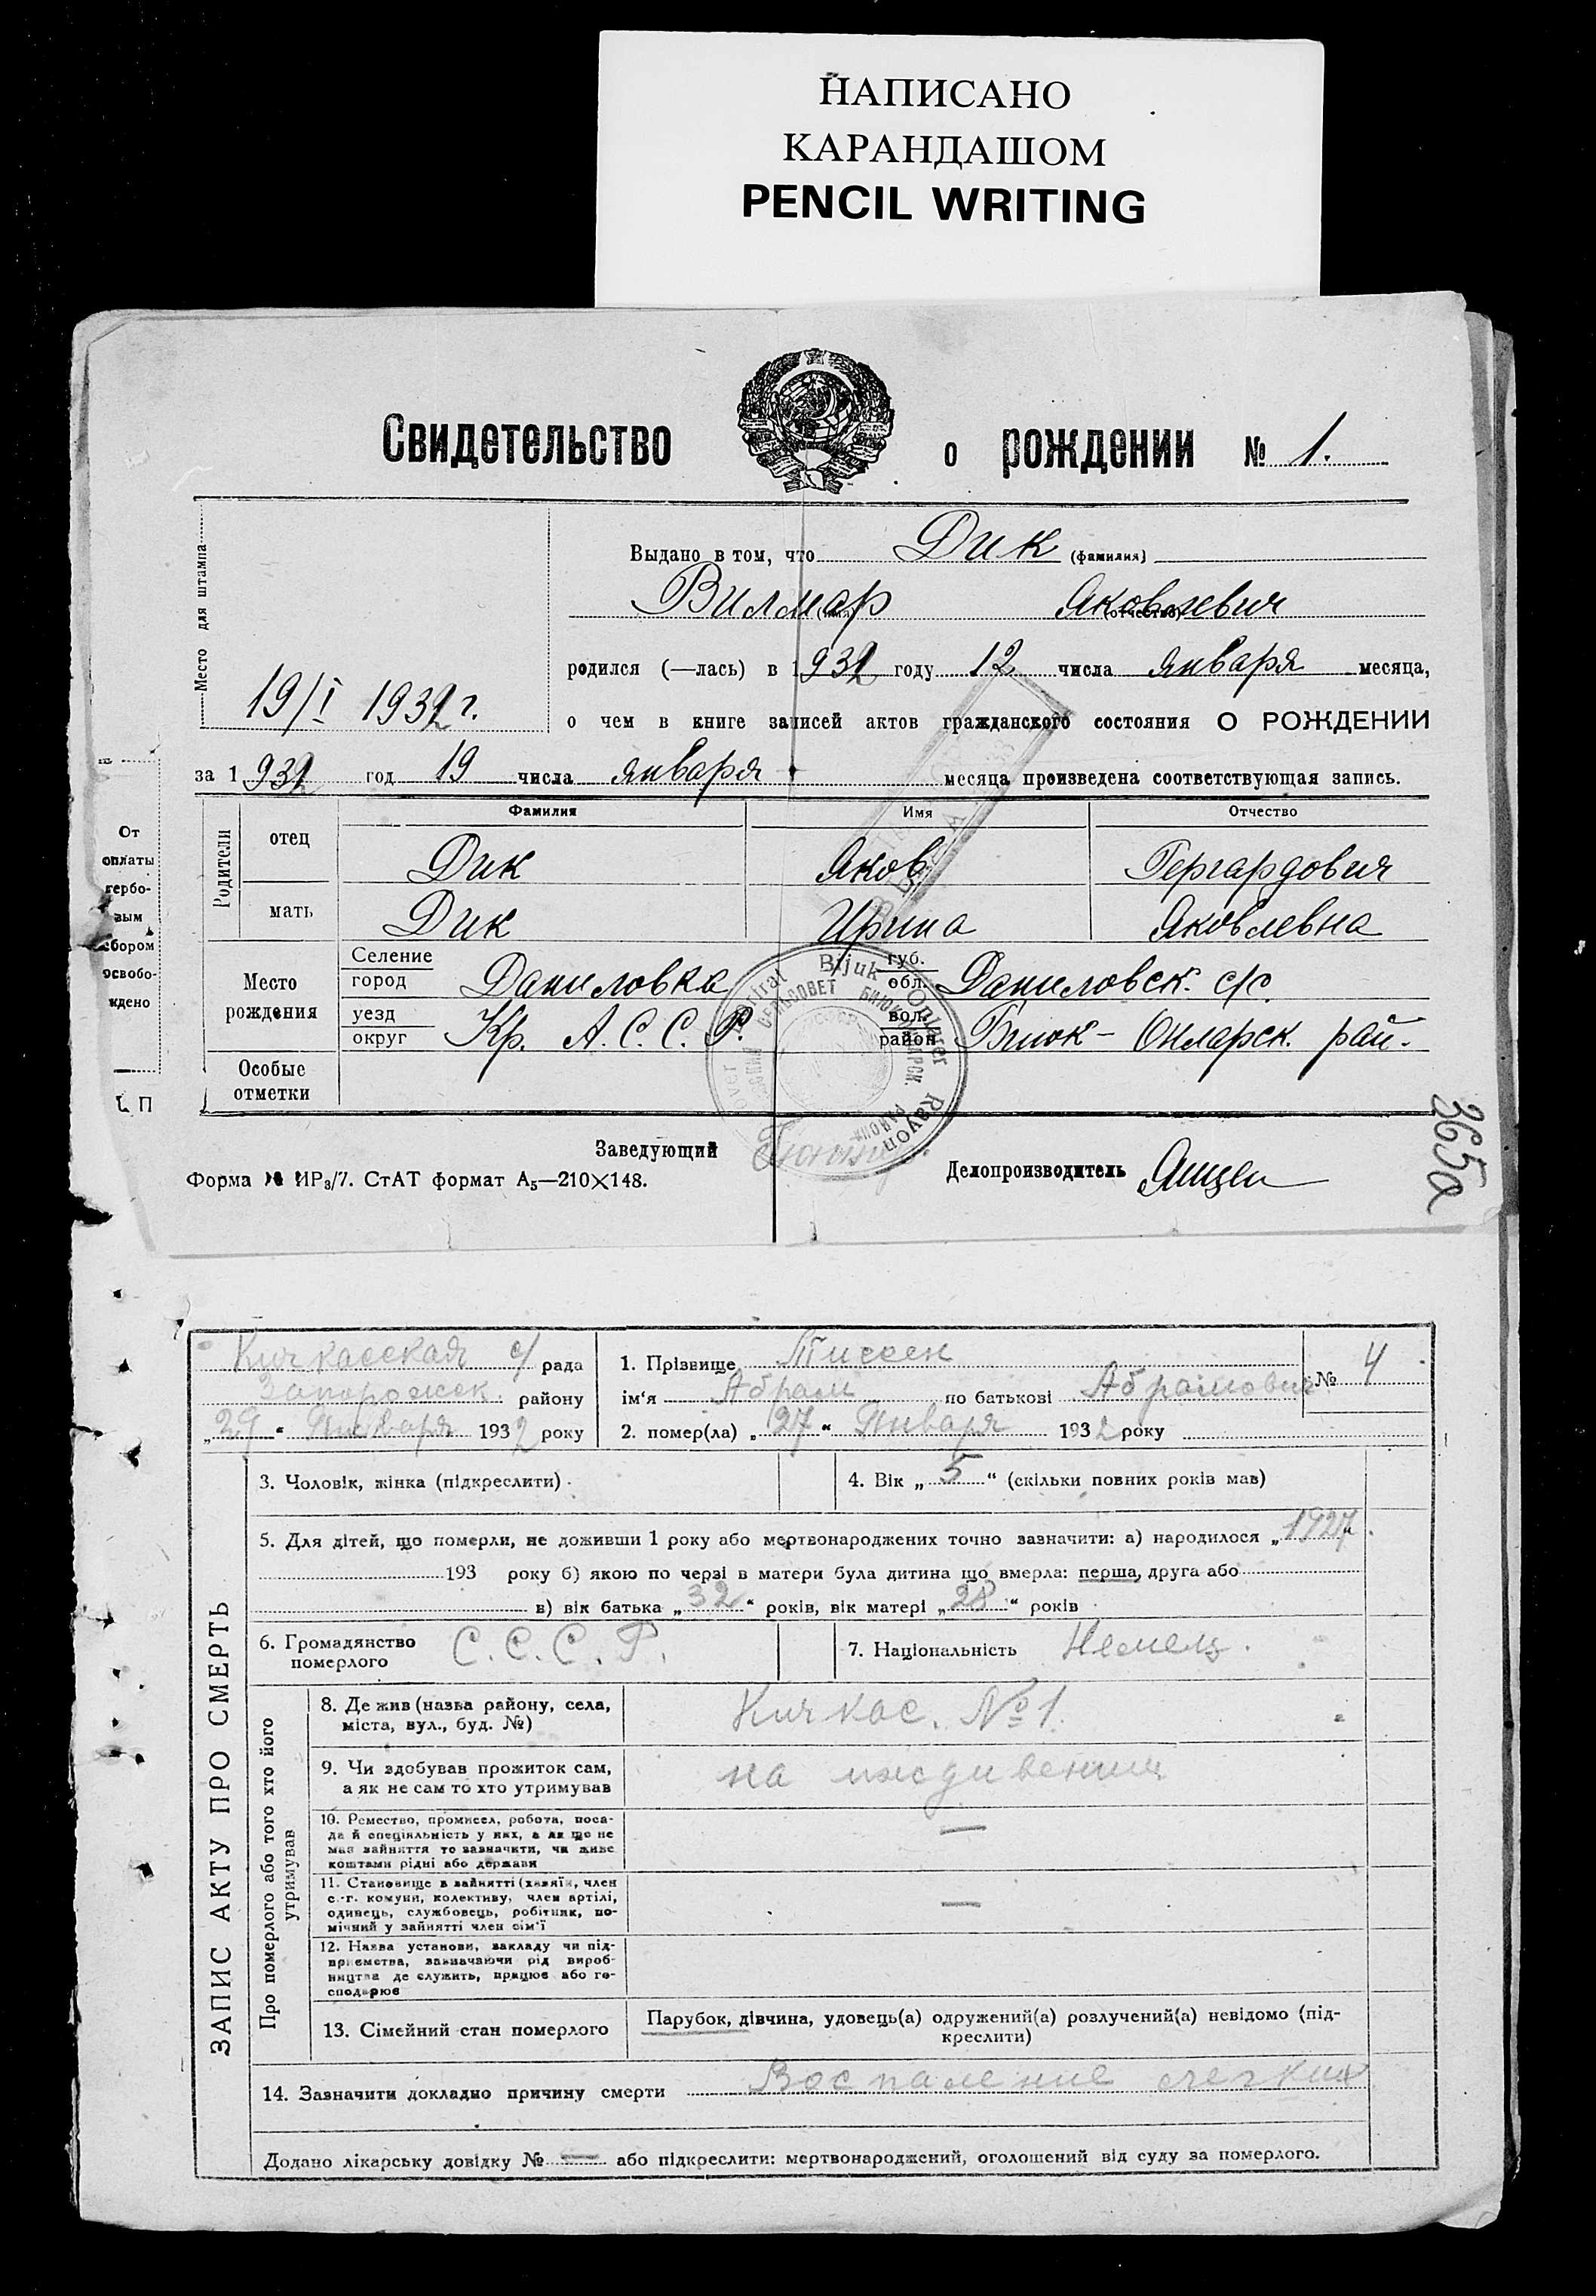 НАПИСАНО
КАРАНДАШОМ
PENCIL WRITING
Свидетельство о рождении № 1.
Место для штампа
19/I 1932 г.
Выдано в том, что Дик (фамилия)
Вилмар (имя) Яковлевич (отчество)
родился (—лась) в 1932 году 12 числа января месяца,
о чем в книге записей актов гражданского состояния О РОЖДЕНИИ
за 1932 год 19 числа января месяца произведена соответствующая запись.
От
оплаты
гербо-
вым
сбором
освобо-
ждено
Родители
Фамилия Имя Отчество
отец Дик Яков Гергардович
мать Дик Ирина Яковлевна
Место рождения
Селение город Даниловка губ. обл. Даниловск. с/с
уезд округ Кр. А. С. С. Р. вол. район Биюк-Онларск. рай.
Особые отметки
Bijuk Onlarer Rayon
СЕЛЬСОВЕТ
РАЙОНА
Заведующий
Делопроизводитель
Форма № ИР3/7. СтАТ формат А5—210×148.
365а
Кичкасская с/ рада
Запорожск. району
„29“ Января 1932 року
1. Прізвище Тиссен
ім'я Абрам по батькові Абрамович
№ 4
2. помер(ла) „27“ Января 1932 року
ЗАПИС АКТУ ПРО СМЕРТЬ
3. Чоловік, жінка (підкреслити)
4. Вік „5“ (скільки повних років мав)
5. Для дітей, що померли, не доживши 1 року або мертвонароджених точно зазначити: а) народилося „1927“
193 року б) якою по черзі в матери була дитина що вмерла: перша, друга або
в) вік батька „32“ років, вік матері „28“ років
6. Громадянство
померлого
С. С. С. Р.
7. Національність Немец.
Про померлого або того хто його
утримував
8. Де жив (назва району, села,
міста, вул., буд. №)
Кичкас. № 1.
9. Чи здобував прожиток сам,
а як не сам то хто утримував
на иждивении
10. Ремество, промисел, робота, поса-
да й спеціяльність у них, а як що не
мав зайняття то зазначити, чи живе
коштами рідні або держави
—
11. Становище в зайнятті (хазяїн, член
с.-г. комуни, колективу, член артілі,
одинець, службовець, робітник, по-
мічний у зайнятті член сім'ї
—
12. Назва установи, закладу чи під-
приємства, зазначаючи рід вироб-
ництва де служить, працює або го-
сподарює
13. Сімейний стан померлого
Парубок, дівчина, удовець(а) одружений(а) розлучений(а) невідомо (під-
креслити)
14. Зазначити докладно причину смерти Воспаление легких
Додано лікарську довідку № — або підкреслити: мертвонароджений, оголошений від суду за померлого.